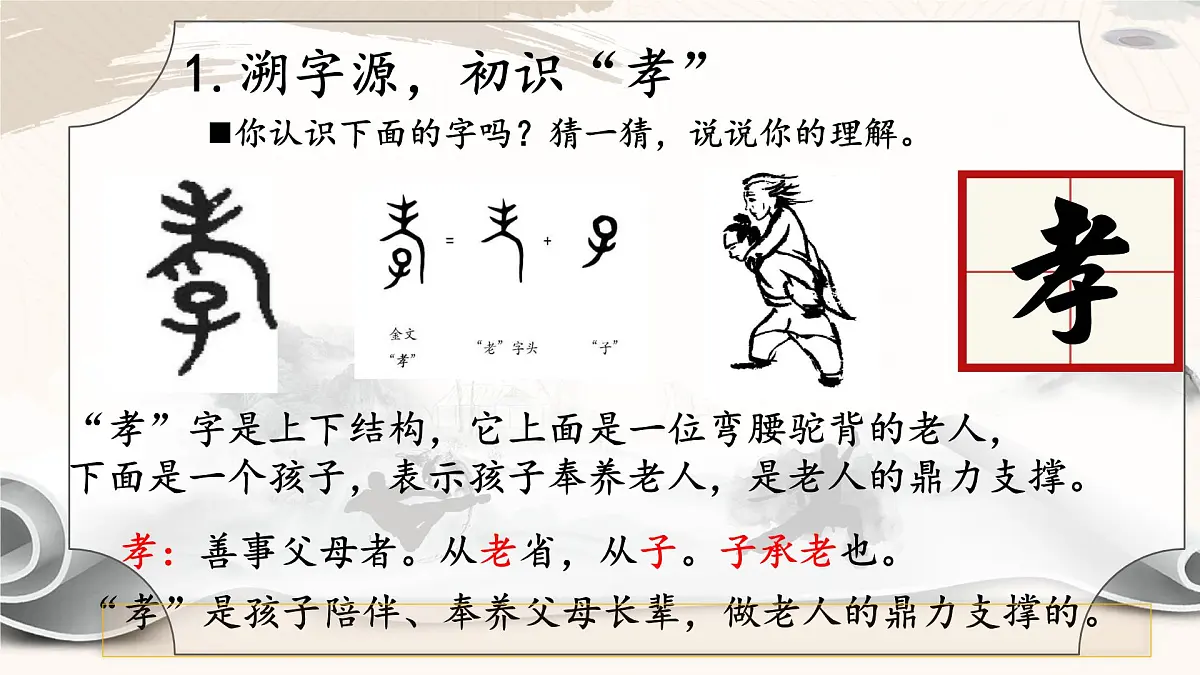 1.溯字源，初识“孝”
■你认识下面的字吗？猜一猜，说说你的理解。
孝 = 耂 + 子
金文
“孝”
“老”字头
“子”
孝
“孝”字是上下结构，它上面是一位弯腰驼背的老人，
下面是一个孩子，表示孩子奉养老人，是老人的鼎力支撑。
孝：善事父母者。从老省，从子。子承老也。
“孝”是孩子陪伴、奉养父母长辈，做老人的鼎力支撑的。